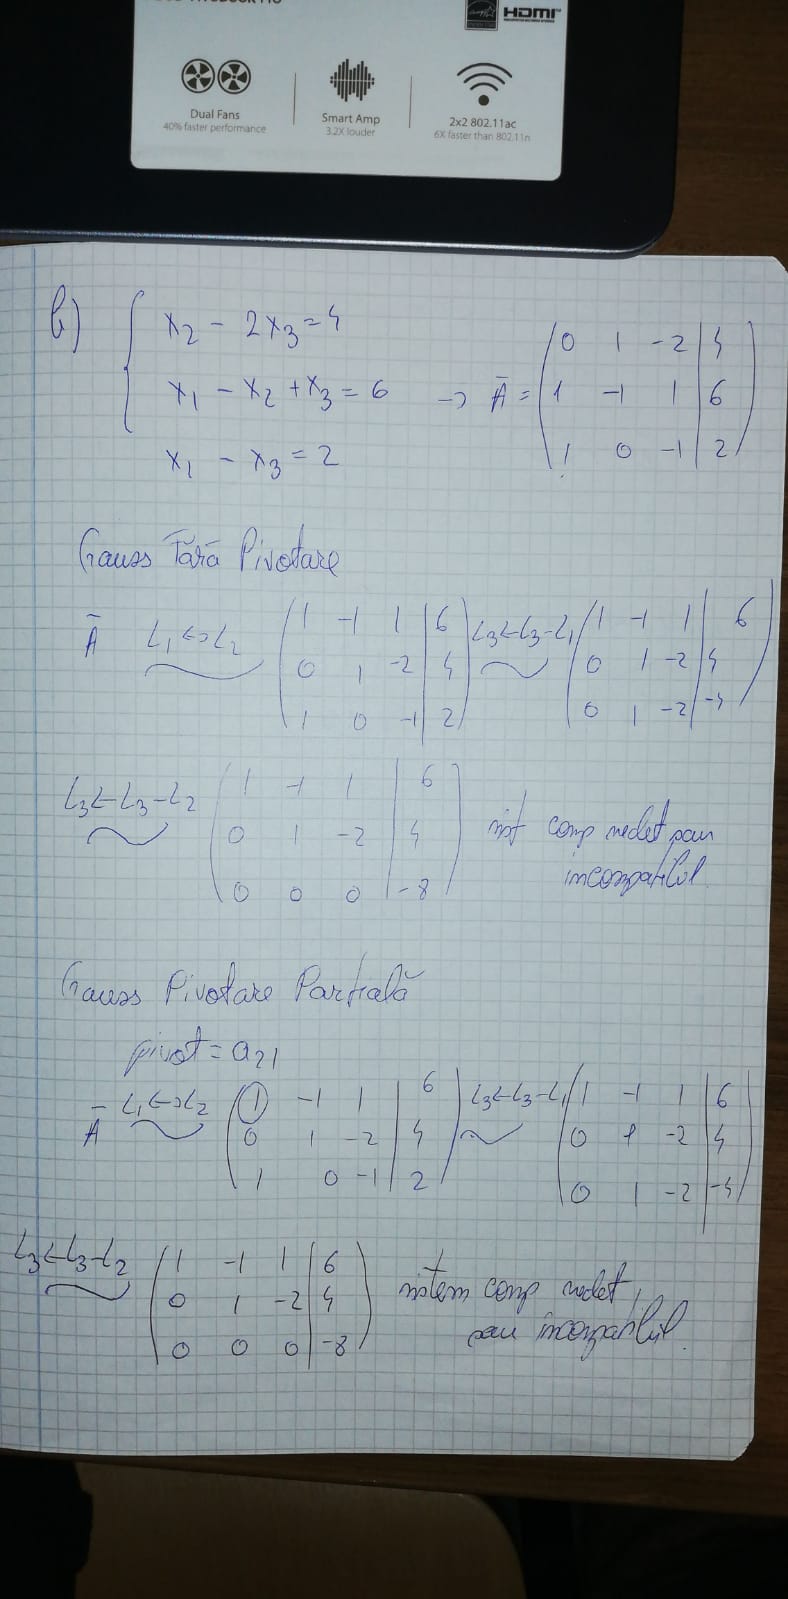 HDMI
Dual Fans
40% faster performance
Smart Amp
3.2X louder
2x2 802.11ac
6X faster than 802.11n
b) { x2 - 2x3 = 4
x1 - x2 + x3 = 6 → Ā = ( 0 1 -2 | 4
1 -1 1 | 6
x1 - x3 = 2
1 0 -1 | 2 )
Gauss Fără Pivotare
Ā L1 <-> L2 ( 1 -1 1 | 6
0 1 -2 | 4
1 0 -1 | 2 )
L3 <- L3 - L1 ( 1 -1 1 | 6
0 1 -2 | 4
0 1 -2 | -4 )
L3 <- L3 - L2 ( 1 -1 1 | 6
0 1 -2 | 4
0 0 0 | -8 )
sist comp nedet sau
incompatibil.
Gauss Pivotare Parțială
pivot = a21
Ā L1 <-> L2 ( 1 -1 1 | 6
0 1 -2 | 4
1 0 -1 | 2 )
L3 <- L3 - L1 ( 1 -1 1 | 6
0 1 -2 | 4
0 1 -2 | -4 )
L3 <- L3 - L2 ( 1 -1 1 | 6
0 1 -2 | 4
0 0 0 | -8 )
sistem comp nedet,
sau incompatibil.